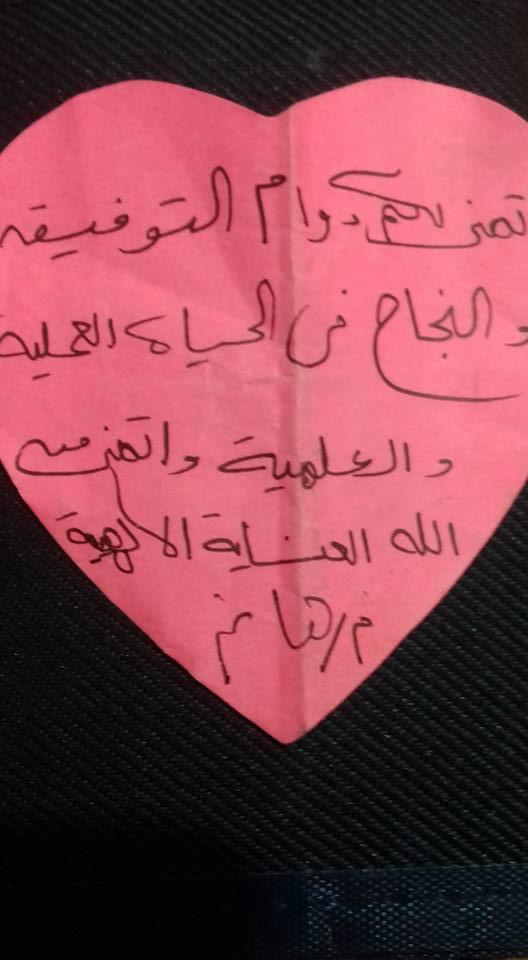 اتمنى لكم دوام التوفيق
والنجاح فى الحياة العملية
والعلمية واتمنى من
الله العناية الالهية